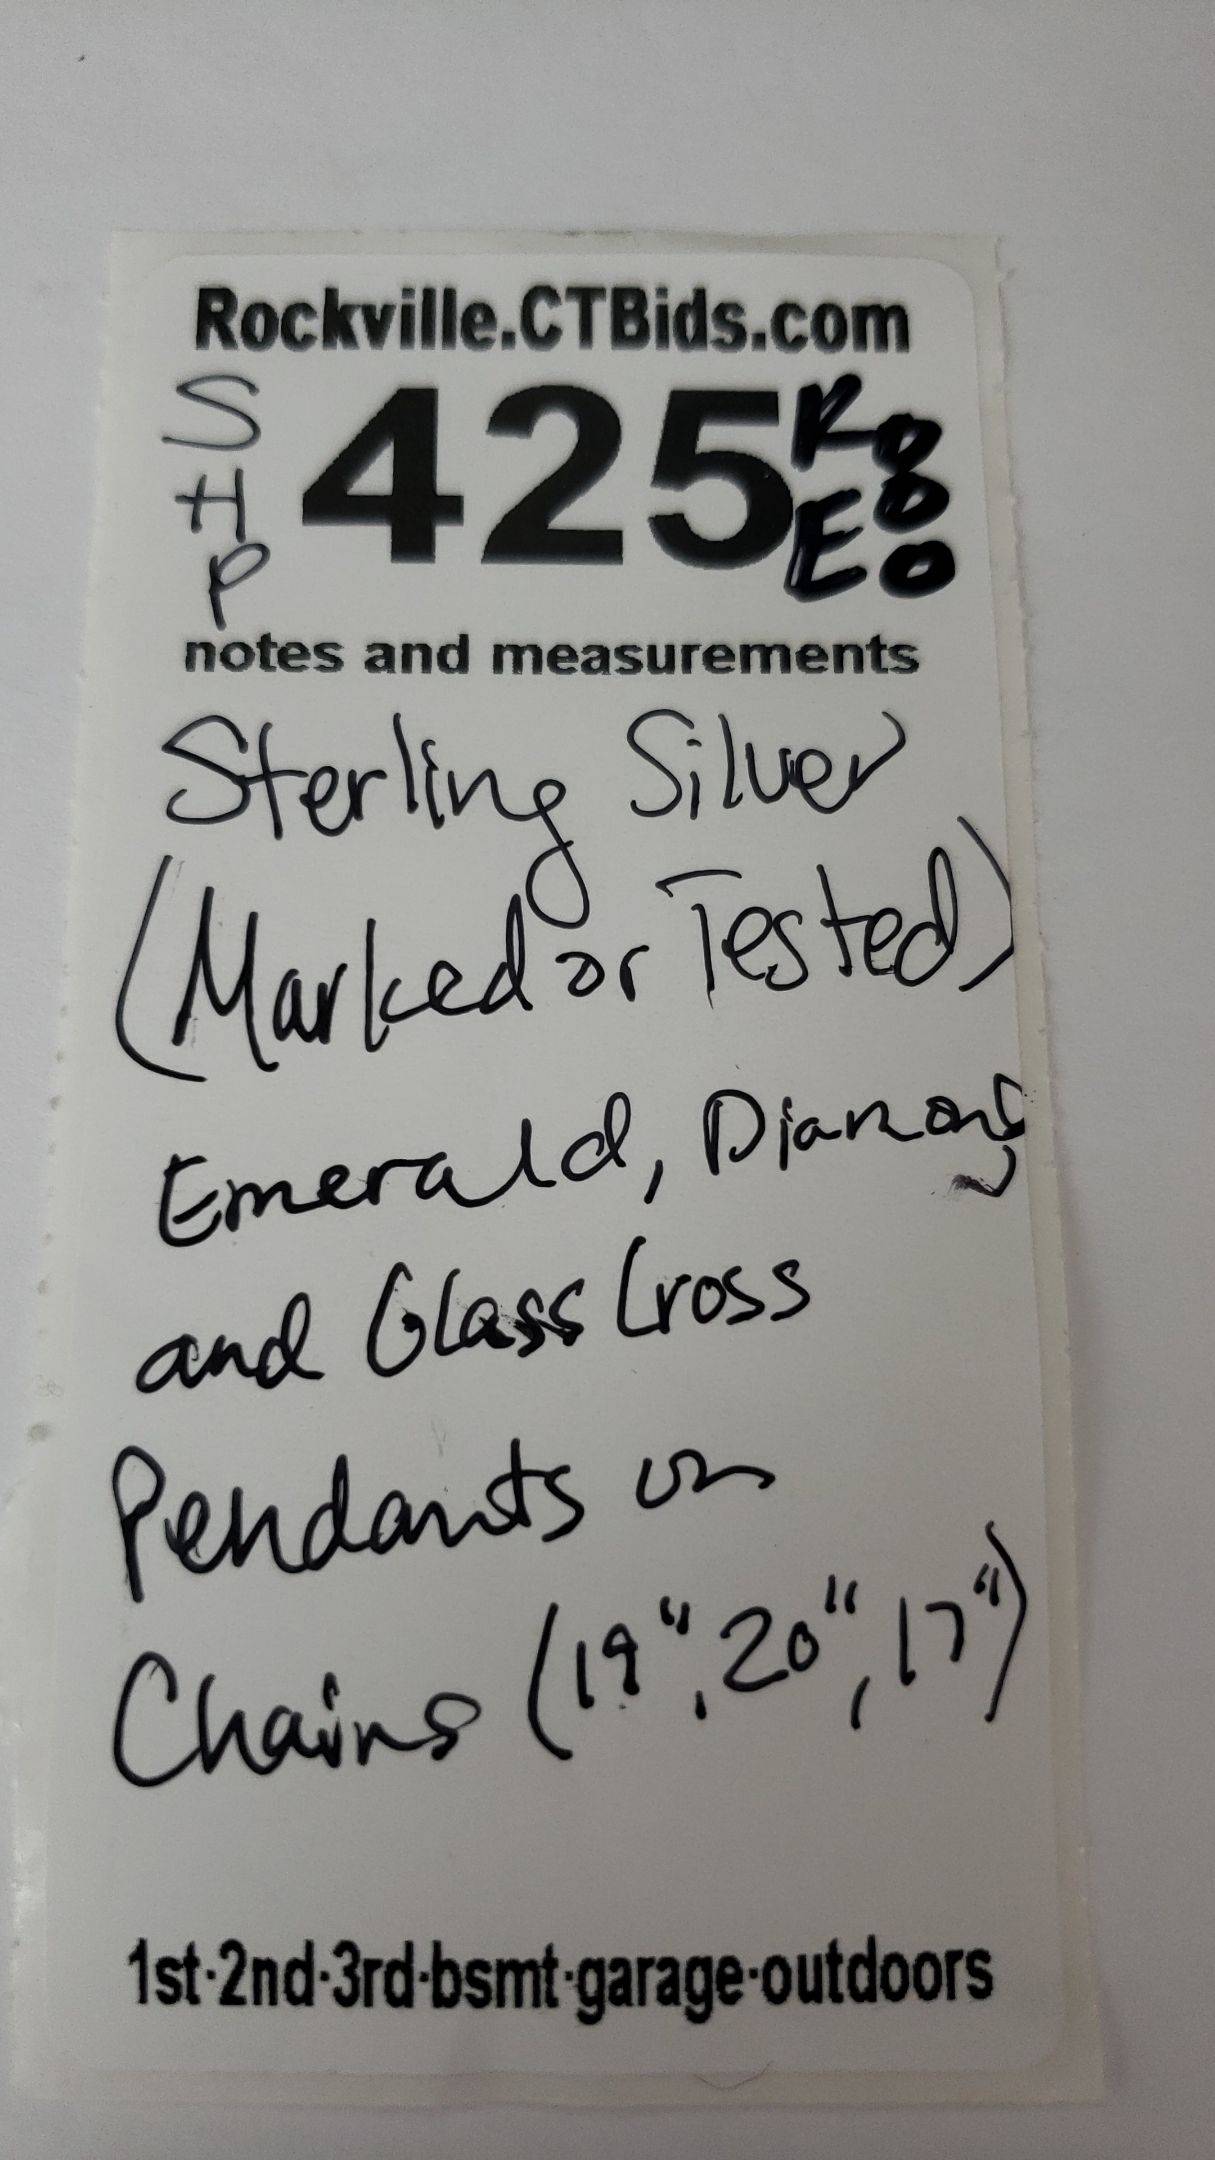 Rockville.CTBids.com
S
H
P
425
notes and measurements
Sterling Silver
(Marked or Tested)
Emerald, Diamond,
and Glass Cross
Pendants on
Chains (19", 20", 17")
1st·2nd·3rd·bsmt·garage·outdoors